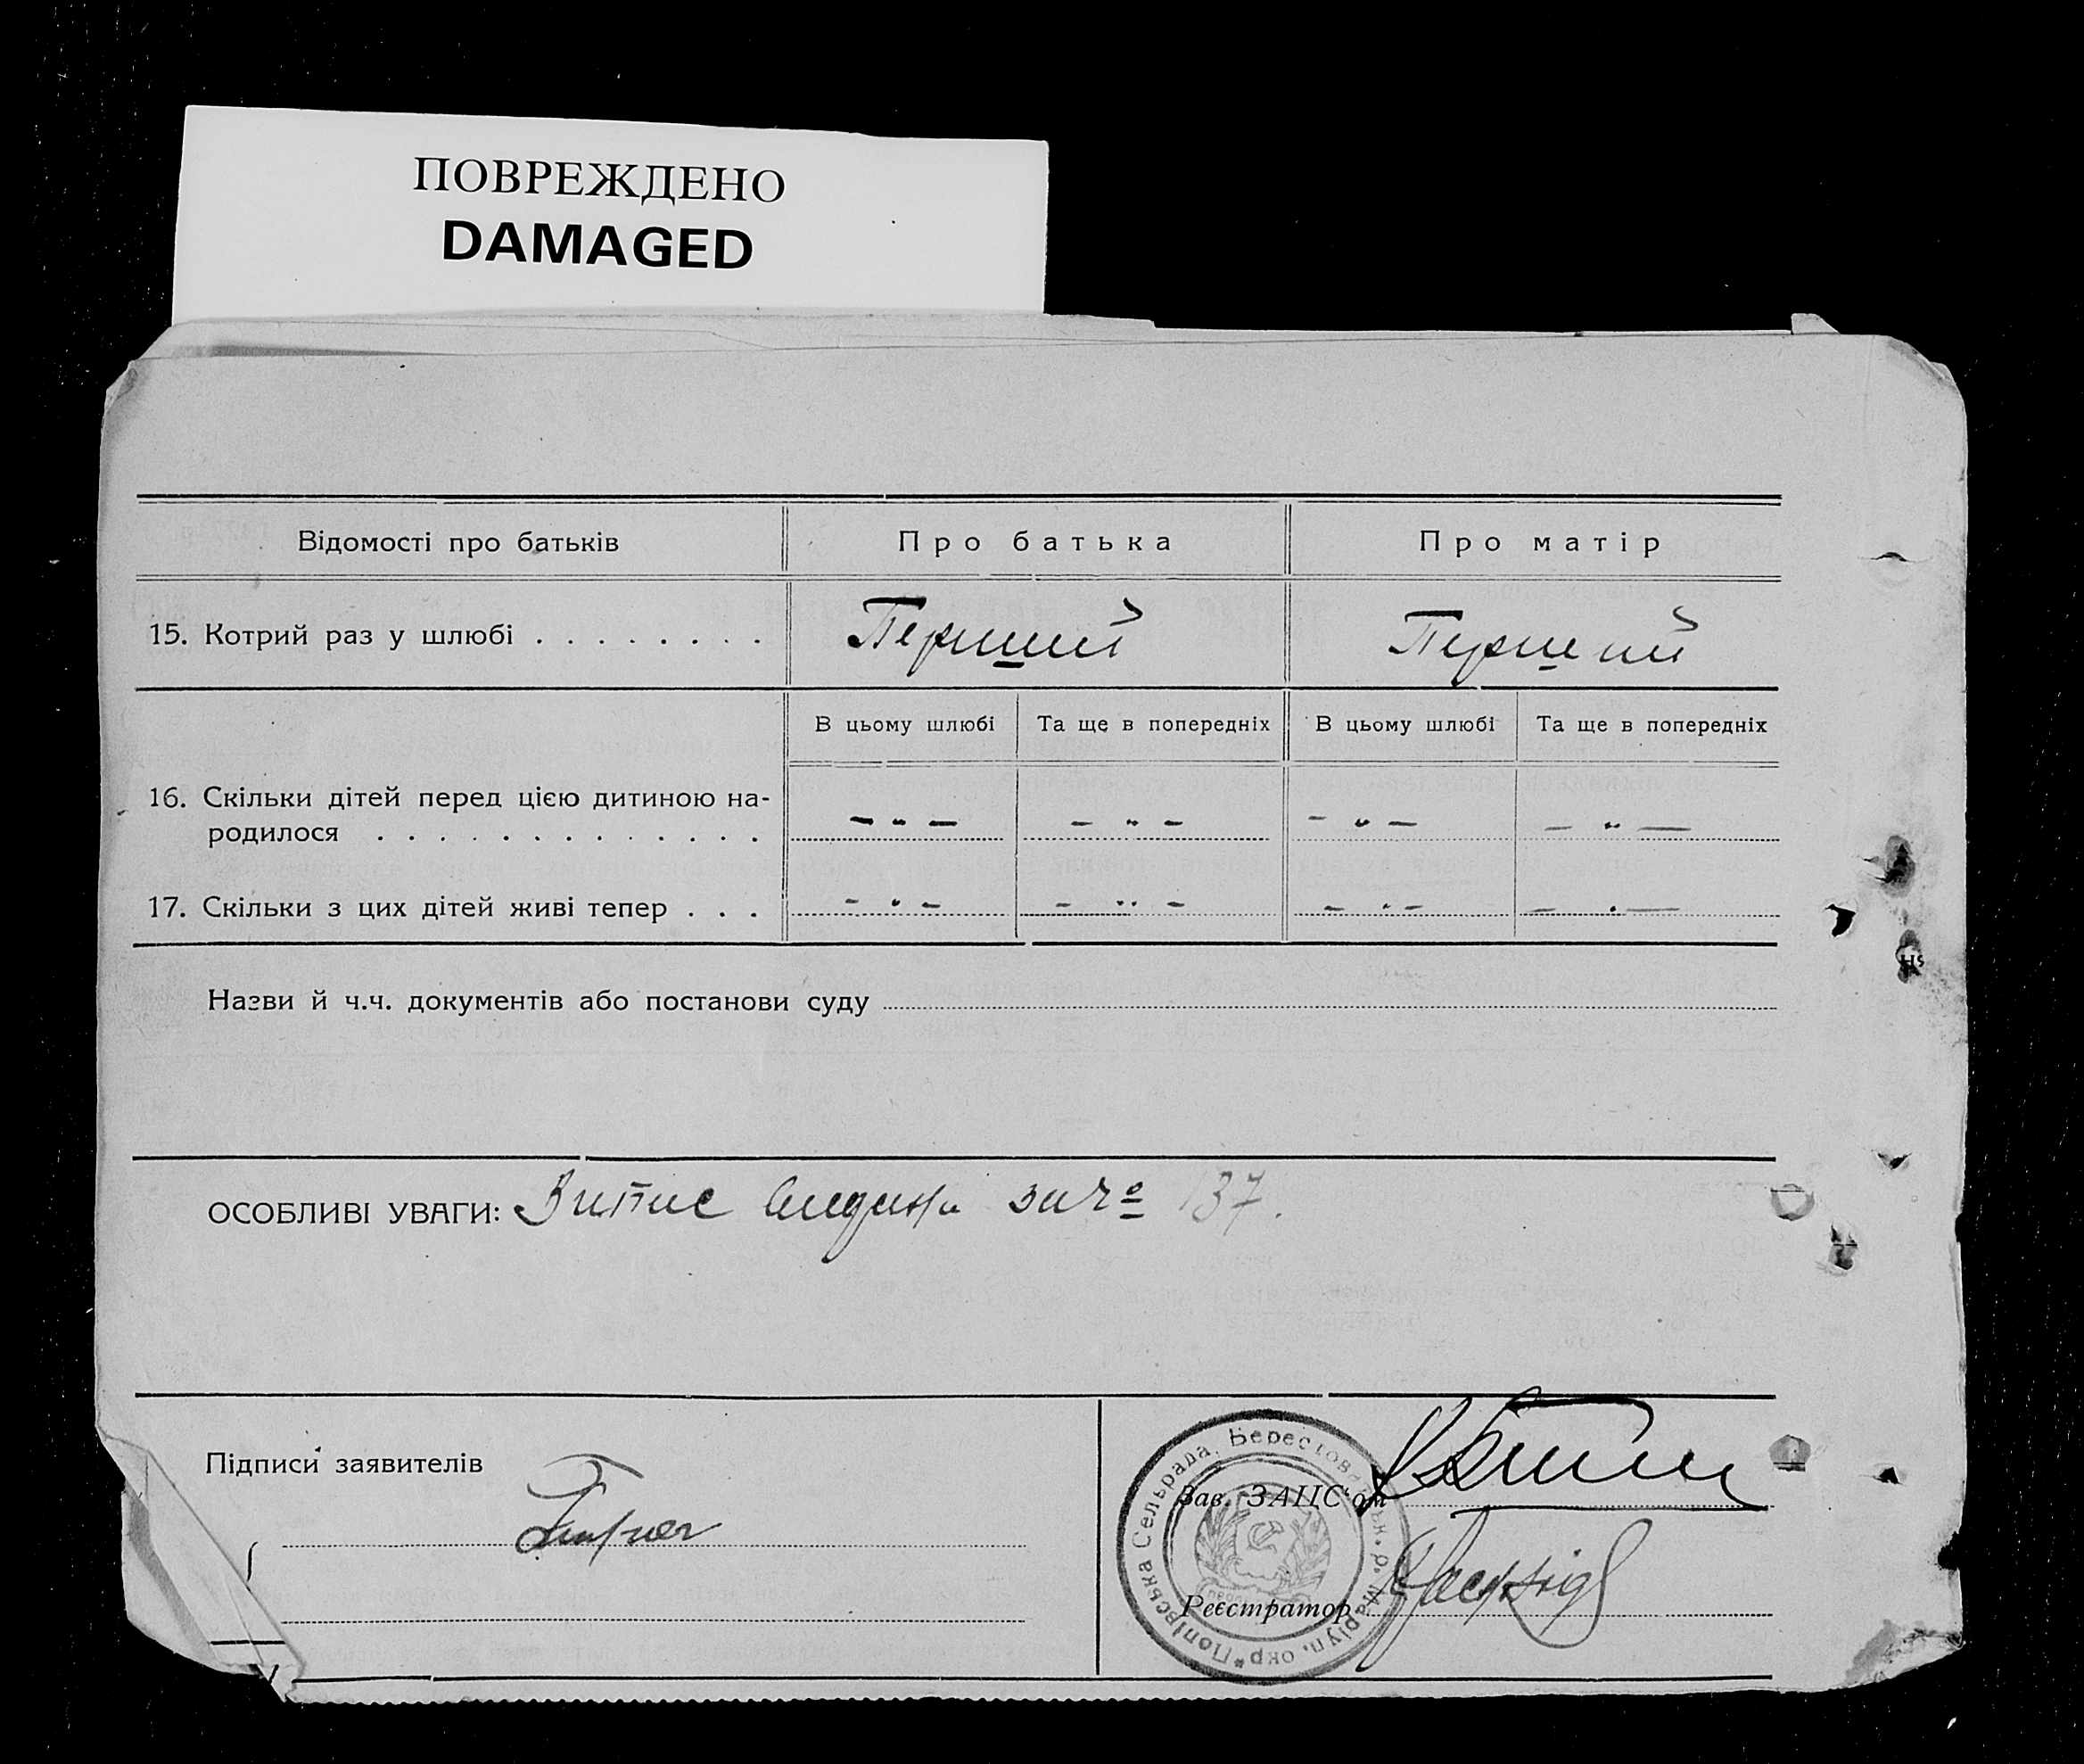 ПОВРЕЖДЕНО
DAMAGED
Відомості про батьків
Про батька
Про матір
15. Котрий раз у шлюбі . . . . . . . .
Перший
Перший
В цьому шлюбі
Та ще в попередніх
В цьому шлюбі
Та ще в попередніх
16. Скільки дітей перед цією дитиною на-
родилося . . . . . . . . . . . . .
— " —
— " —
— " —
— " —
17. Скільки з цих дітей живі тепер . . .
— " —
— " —
— " —
— " —
Назви й ч.ч. документів або постанови суду
ОСОБЛИВІ УВАГИ: Випис видана за ч° 137.
Підписи заявителів
Зав. ЗАЦС'ом
Реєстратор
Попівська Сельрада, Берестов р. Маріуп. окр.